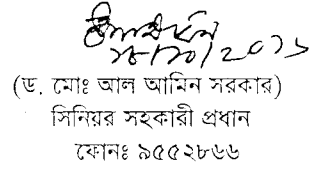 (ড. মোঃ আল আমিন সরকার)
সিনিয়র সহকারী প্রধান
ফোনঃ ৯৫৫২৮৬৬